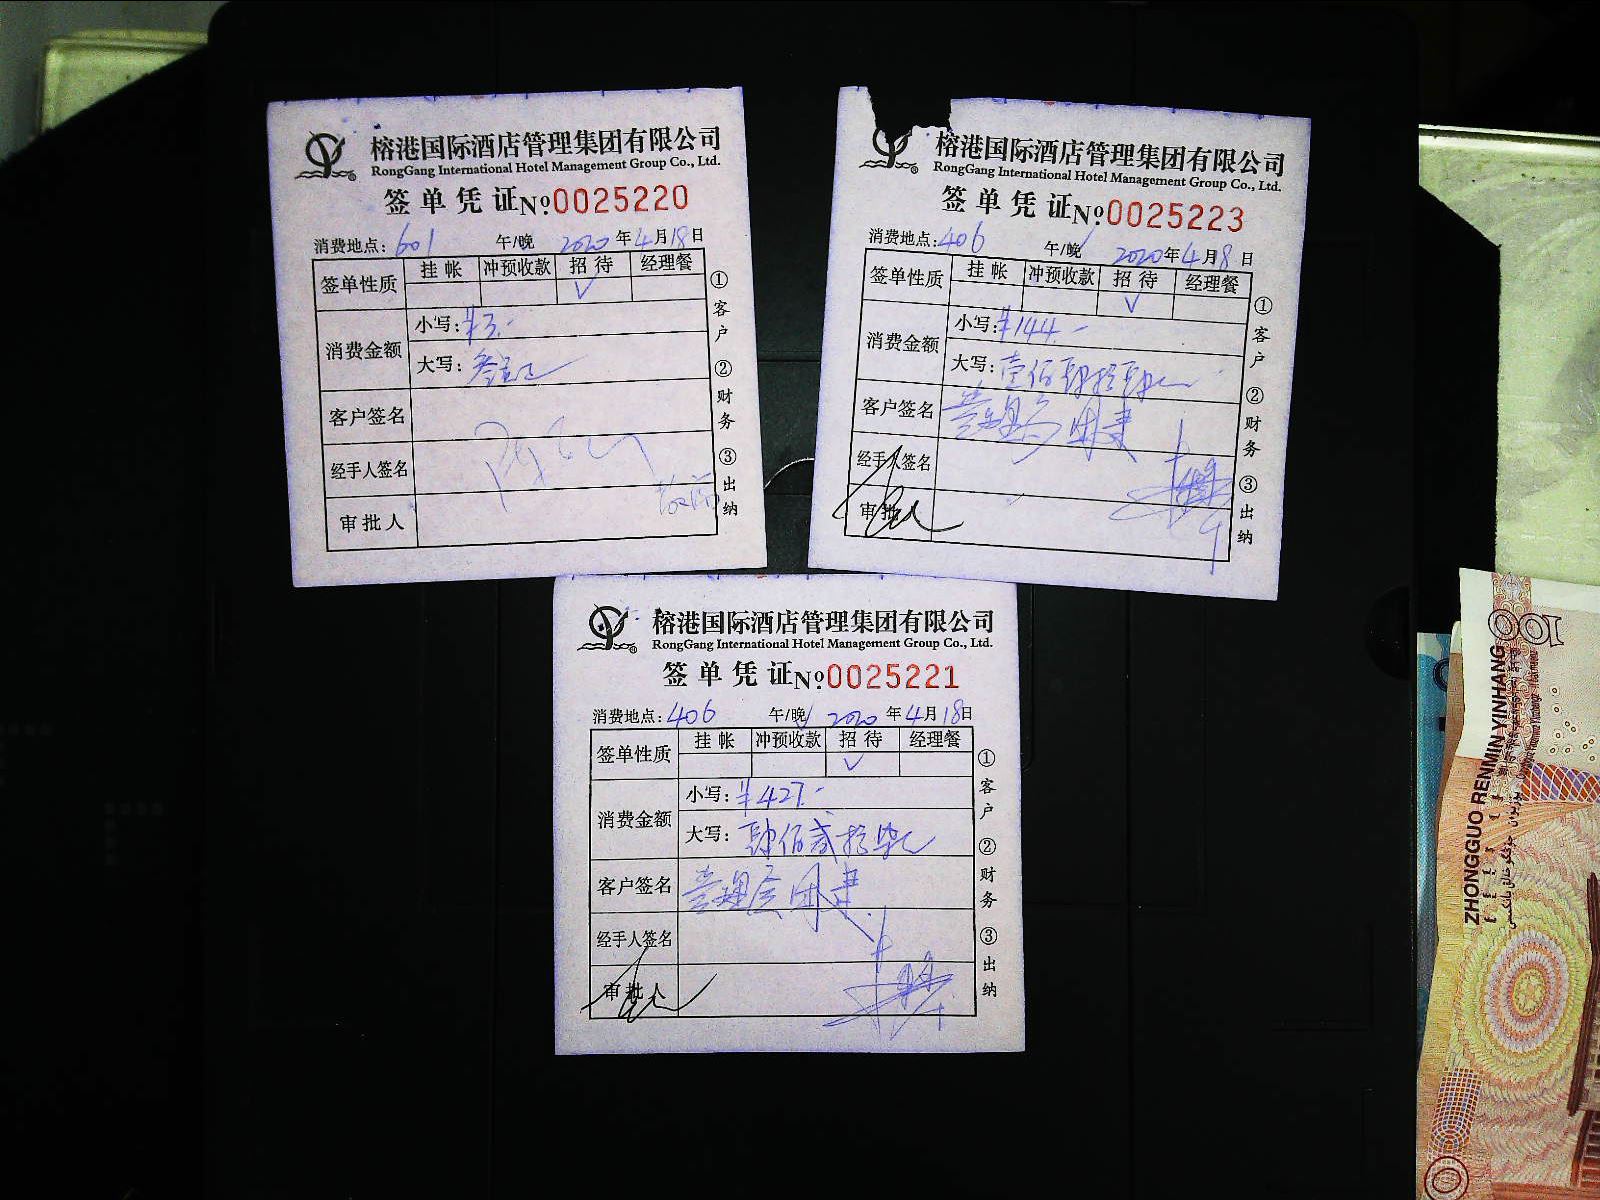 榕港国际酒店管理集团有限公司
RongGang International Hotel Management Group Co., Ltd.
签单凭证 №0025220
消费地点: 601 午/晚 2020年4月18日
签单性质 挂帐 冲预收款 招待 经理餐
✓
消费金额 小写: ¥3.-
大写: 叁元正
客户签名
经手人签名
审批人
① 客户 ② 财务 ③ 出纳
榕港国际酒店管理集团有限公司
RongGang International Hotel Management Group Co., Ltd.
签单凭证 №0025223
消费地点: 406 午/晚✓ 2020年4月18日
签单性质 挂帐 冲预收款 招待 经理餐
✓
消费金额 小写: ¥144.-
大写: 壹佰肆拾肆元
客户签名 管理层团建
经手人签名
审批人
① 客户 ② 财务 ③ 出纳
榕港国际酒店管理集团有限公司
RongGang International Hotel Management Group Co., Ltd.
签单凭证 №0025221
消费地点: 406 午/晚✓ 2020年4月18日
签单性质 挂帐 冲预收款 招待 经理餐
✓
消费金额 小写: ¥427.-
大写: 肆佰贰拾柒元
客户签名 管理层团建
经手人签名
审批人
① 客户 ② 财务 ③ 出纳
100
ZHONGGUO RENMIN YINHANG